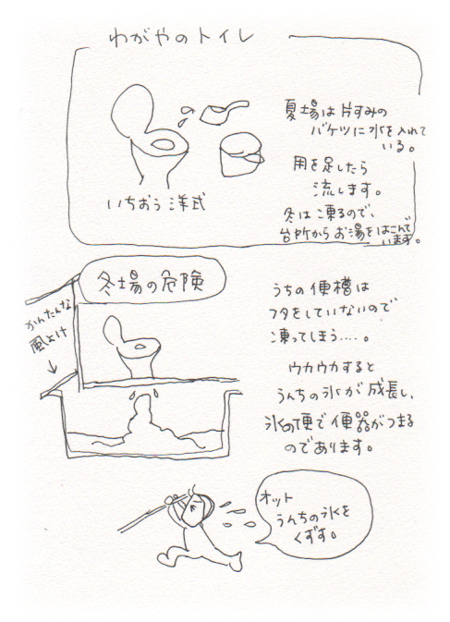 わがやのトイレ
夏場は片すみの
バケツに水を入れて
いる。
用を足したら
流します。
冬は凍るので、
台所からお湯をはこんで
います。
いちおう洋式
冬場の危険
かんたんな
風よけ
うちの便槽は
フタをしていないので
凍ってしまう……。
ウカウカすると
うんちの氷が成長し、
氷の便で便器がつまる
のであります。
オット
うんちの氷を
くずす。